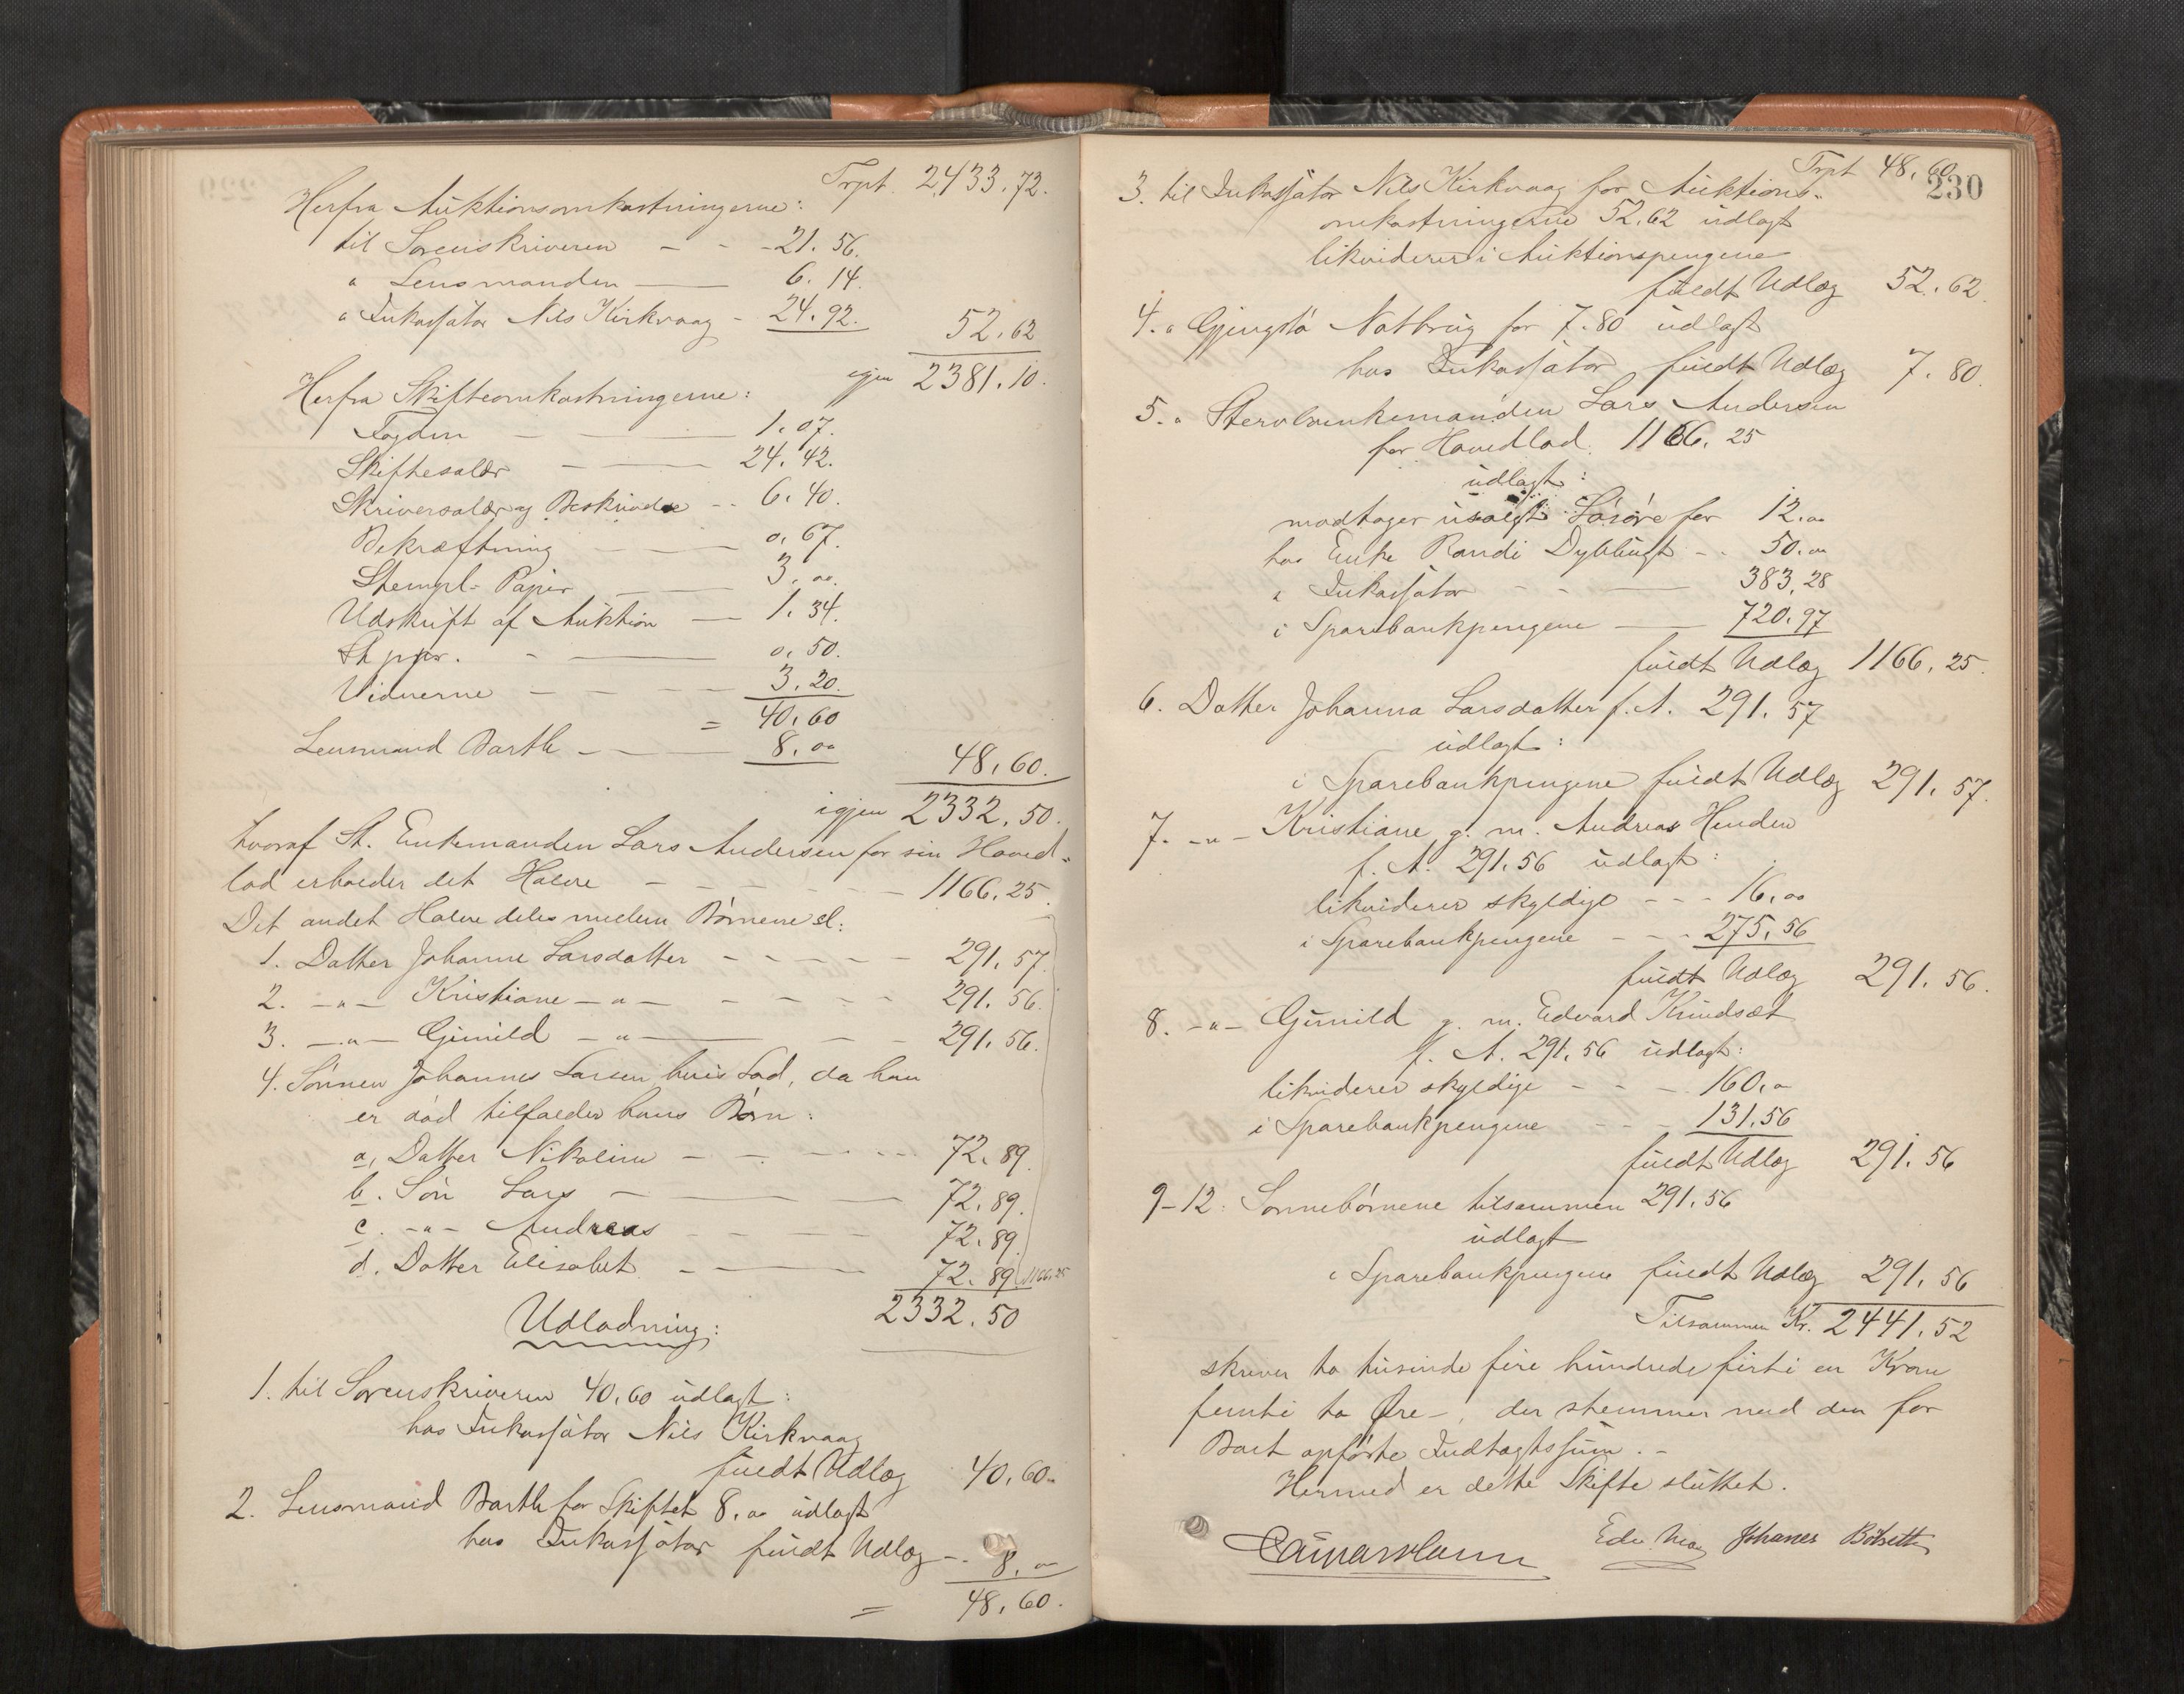 Trpt. 2433.72.
Herfra Auktionsomkostningerne:
til Sorenskriveren - - - 21.56.
" Lensmanden — 6.14.
" Inkassator Nils Kirkvaag - 24.92.
52.62
igjen 2381.10.
Herfra Skifteomkostningerne:
Fogden - — 1.07.
Skiftesalær — 24.42.
Skriversalær og Beskrivelse - - 6.40.
Bekræftning — 0.67.
Stempl. Papir — 3.00.
Udskrift af Auktion — 1.34.
St ppr. - — 0.50.
Vidnerne - - - - 3.20.
= 40.60
Lensmand Barth - — 8.00
48.60.
igjen 2332.50.
hvoraf St. Enkemanden Lars Andersen for sin Hoved-
lod erholder det Halve - - - - - - 1166.25.
Det andet Halve deles mellem Børnene sl:
1. Datter Johanne Larsdatter - - - - - 291.57.
2. -"- Kristiane -"- - - - - 291.56.
3. -"- Gunild -"- — - - 291.56.
4. Sønnen Johannes Larsen hvis Lod, da han
er død tilfalder hans Børn:
a, Datter Nikoline - - - - - 72.89.
b. Søn Lars - — 72.89.
c. -"- Andreas - - - - 72.89.
d. Datter Elisabet - — 72.89 1166.25
2332.50
Udlodning:
1. til Sorenskriveren 40.60 udlagt:
hos Inkassator Nils Kirkvaag
fuldt Udlæg 40.60.
2. Lensmand Barth for Skiftet 8.00 udlagt
hos Inkassator fuldt Udlæg - . 8.00
= 48.60.
Trpt 48.60
230
3. til Inkassator Nils Kirkvaag for Auktions-
omkostningerne 52.62 udlagt
likviderer i Auktionspengene
fuldt Udlæg 52.62.
4. " Notbrug for 7.80 udlagt
hos Inkassator fuldt Udlæg 7.80.
5. " Stervboenkemanden Lars Andersen
for Hovedlod 1166.25
udlagt:
modtager usolgt Løsøre for 12.00
hos Enke Randi - . 50.00
" Inkassator - - — 383.28
i Sparebankpengene — 720.97
fuldt Udlæg 1166.25.
6. Datter Johanna Larsdatter f. A. 291.57
udlagt:
i Sparebankpengene fuldt Udlæg 291.57.
7. -"- Kristiane g. m. Andreas Henden
f. A. 291.56 udlagt:
likviderer skyldige - - - 16.00
i Sparebankpengene - - - 275.56
fuldt Udlæg 291.56.
8. -"- Gunild g. m. Edvard Knudsæt
f. A. 291.56 udlagt:
likviderer skyldige - - - 160.00
i Sparebankpengene - - - 131.56
fuldt Udlæg 291.56
9-12: Sønnebørnene tilsammen 291.56
udlagt
i Sparebankpengene fuldt Udlæg 291.56
Tilsammen Kr. 2441.52
skriver to tusinde fire hundrede firti en Krone
femti to Øre -, der stemmer med den for
Boet opførte Indtægtssum. -
Hermed er dette Skifte sluttet.
Johanes